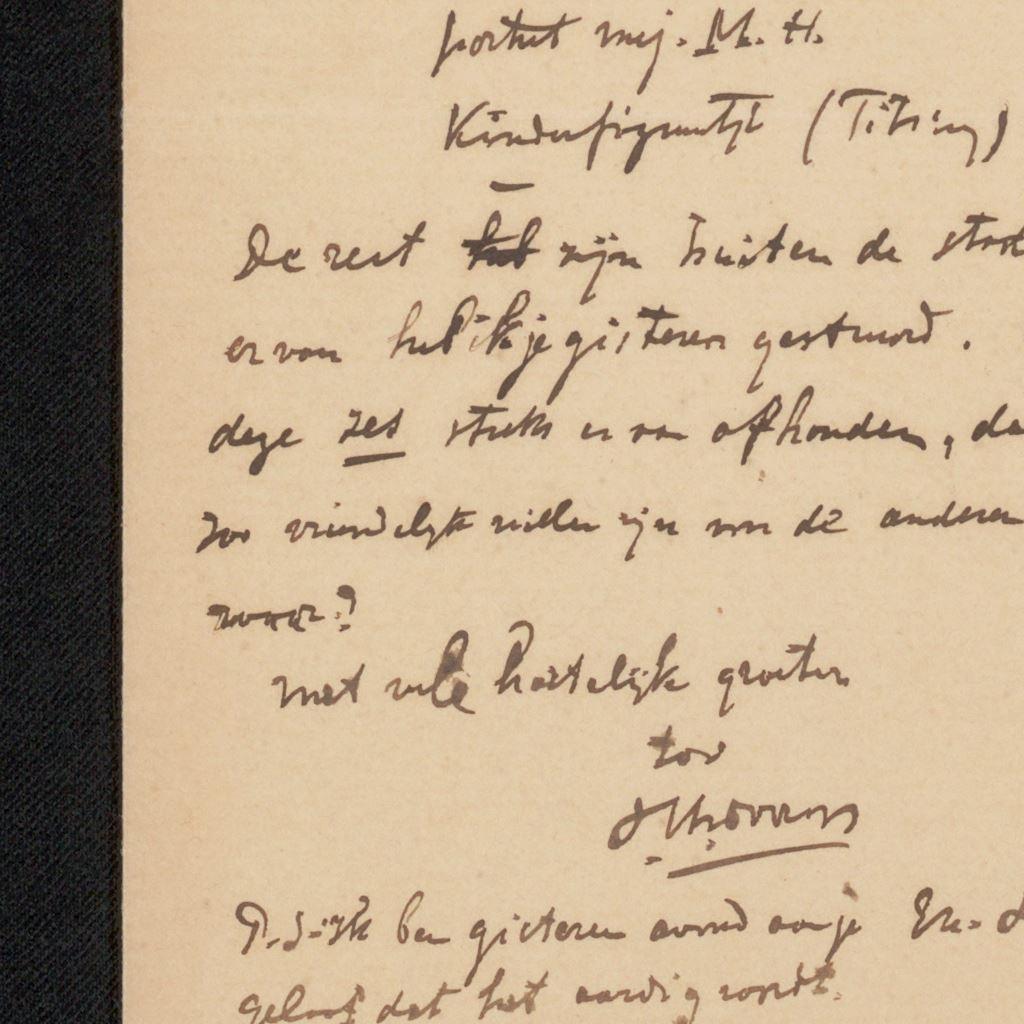 portret mej. M. H.
Kinderfiguurtje (Titsing)
De rest heb zijn buiten de stad
ervan heb ik je gisteren gestuurd.
deze zes stuks er van afhouden, de
zoo vriendelijk willen zijn om de anderen
waar?
met vele hartelijke groeten
tov
P.S. ik ben gisteren avond aan je
geloof dat het aardig wordt.